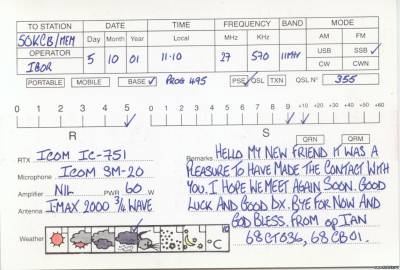 TO STATION DATE TIME FREQUENCY BAND MODE
50KCB/MEM Day Month Year Local MHz KHz AM FM
OPERATOR 5 10 01 11-10 27 570 11MTR USB SSB
IGOR CW CWN
PORTABLE MOBILE BASE PROG 495 PSE QSL TXN QSL Nº 355
0 1 2 3 4 5 0 1 2 3 4 5 6 7 8 9 +10 +20 +30 +40 +50 +60
R S QRN QRM
RTX ICOM IC-751
Microphone ICOM SM-20
Amplifier NIL PWR 60 W
Antenna I-MAX 2000 3/4 WAVE
Weather °C
Remarks HELLO MY NEW FRIEND IT WAS A
PLEASURE TO HAVE MADE THE CONTACT WITH
YOU. I HOPE WE MEET AGAIN SOON. GOOD
LUCK AND GOOD DX. BYE FOR NOW AND
GOD BLESS. FROM OP IAN
68CT036, 68CB01.